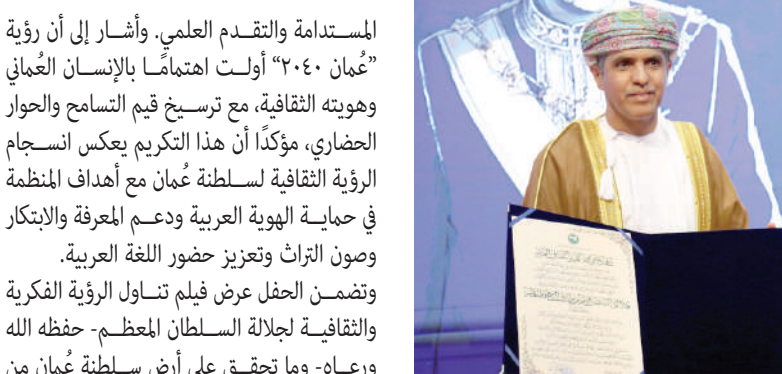 المستدامة والتقدم العلمي. وأشار إلى أن رؤية
”عُمان ٢٠٤٠“ أولت اهتمامًا بالإنسان العُماني
وهويته الثقافية، مع ترسيخ قيم التسامح والحوار
الحضاري، مؤكدًا أن هذا التكريم يعكس انسجام
الرؤية الثقافية لسلطنة عُمان مع أهداف المنظمة
في حماية الهوية العربية ودعم المعرفة والابتكار
وصون التراث وتعزيز حضور اللغة العربية.
وتضمن الحفل عرض فيلم تناول الرؤية الفكرية
والثقافية لجلالة السلطان المعظم- حفظه الله
ورعاه- وما تحقق على أرض سلطنة عُمان من